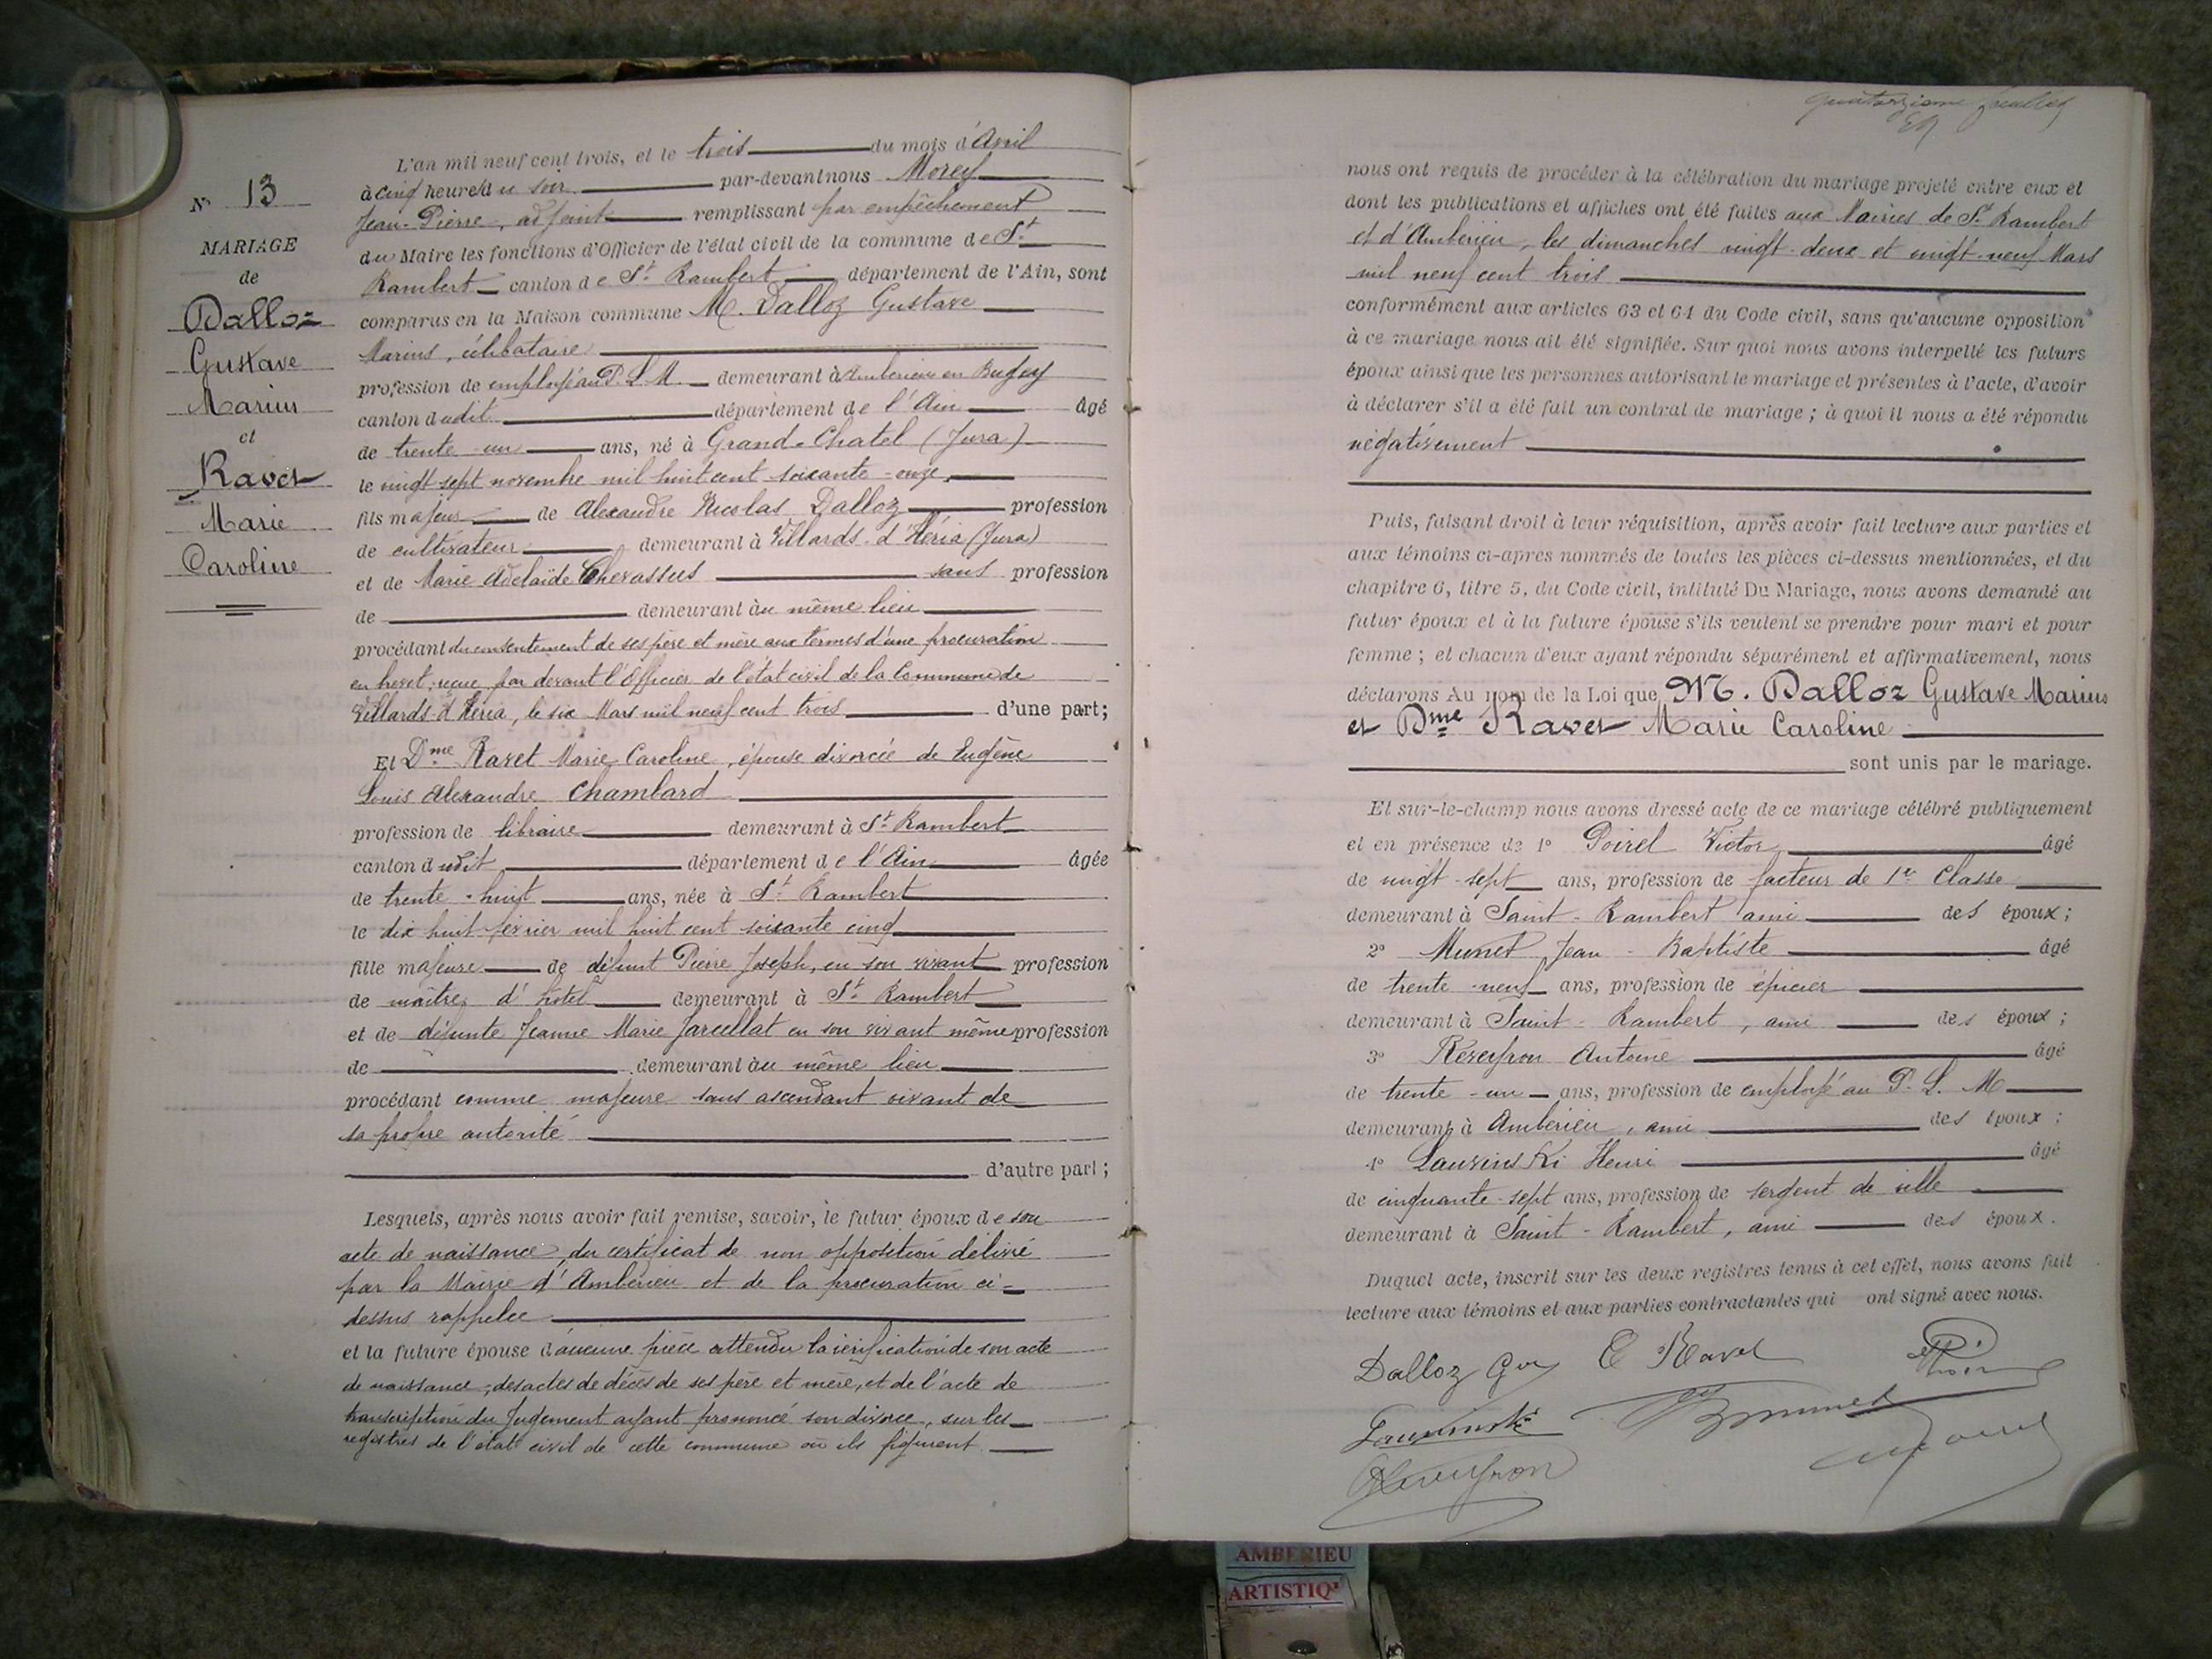 N° 13
MARIAGE
de
Dalloz
Gustave
Marius
et
Ravet
Marie
Caroline
L'an mil neuf cent trois, et le trois du mois d'Avril
à cinq heures du soir par-devant nous Morey
Jean-Pierre, adjoint remplissant par empêchement
du Maire les fonctions d'Officier de l'état civil de la commune de St
Rambert canton de St Rambert département de l'Ain, sont
comparus en la Maison commune M. Dalloz Gustave
Marius, célibataire
profession de employé au P. L. M. demeurant à Ambérieu en Bugey
canton dudit département de l'Ain âgé
de trente un ans, né à Grand-Chatel (Jura)
le vingt sept novembre mil huit cent soixante-onze,
fils majeur de Alexandre Nicolas Dalloz profession
de cultivateur demeurant à Villards-d'Héria (Jura)
et de Marie Adelaïde Chevassus sans profession
de demeurant au même lieu
procédant du consentement de ses père et mère aux termes d'une procuration
en brevet, reçue par devant l'Officier de l'état civil de la Commune de
Villards-d'Héria, le six Mars mil neuf cent trois d'une part;
Et Dme Ravet Marie Caroline, épouse divorcée de Eugène
Louis Alexandre Chamblard
profession de libraire demeurant à St Rambert
canton dudit département de l'Ain âgée
de trente-huit ans, née à St Rambert
le dix huit février mil huit cent soixante cinq
fille majeure de défunt Pierre Joseph, en son vivant profession
de maître d'hôtel demeurant à St Rambert
et de défunte Jeanne Marie Jarcellat en son vivant même profession
de demeurant au même lieu
procédant comme majeure sans ascendant vivant de
sa propre autorité
d'autre part;
Lesquels, après nous avoir fait remise, savoir, le futur époux de son
acte de naissance, du certificat de non opposition délivré
par la Mairie d'Ambérieu et de la procuration ci-
dessus rappelée
et la future épouse d'aucune pièce attendu la vérification de son acte
de naissance, des actes de décès de ses père et mère, et de l'acte de
transcription du jugement ayant prononcé son divorce, sur les
registres de l'état civil de cette commune où ils figurent.
nous ont requis de procéder à la célébration du mariage projeté entre eux et
dont les publications et affiches ont été faites aux Mairies de St Rambert
et d'Ambérieu, les dimanches vingt-deux et vingt-neuf Mars
mil neuf cent trois
conformément aux articles 63 et 64 du Code civil, sans qu'aucune opposition
à ce mariage nous ait été signifiée. Sur quoi nous avons interpellé les futurs
époux ainsi que les personnes autorisant le mariage et présentes à l'acte, d'avoir
à déclarer s'il a été fait un contrat de mariage; à quoi il nous a été répondu
négativement
Puis, faisant droit à leur réquisition, après avoir fait lecture aux parties et
aux témoins ci-après nommés de toutes les pièces ci-dessus mentionnées, et du
chapitre 6, titre 5, du Code civil, intitulé Du Mariage, nous avons demandé au
futur époux et à la future épouse s'ils veulent se prendre pour mari et pour
femme; et chacun d'eux ayant répondu séparément et affirmativement, nous
déclarons Au nom de la Loi que M. Dalloz Gustave Marius
et Dme Ravet Marie Caroline
sont unis par le mariage.
Et sur-le-champ nous avons dressé acte de ce mariage célébré publiquement
et en présence de 1° Poirel Victor âgé
de vingt-sept ans, profession de facteur de 1re Classe
demeurant à Saint-Rambert ami des époux;
2° Munet Jean-Baptiste âgé
de trente-neuf ans, profession de épicier
demeurant à Saint-Rambert, ami des époux;
3° Reveyron Antoine âgé
de trente-un ans, profession de employé au P. L. M
demeurant à Ambérieu, ami des époux;
4° Lauvinski Henri âgé
de cinquante-sept ans, profession de sergent de ville
demeurant à Saint-Rambert, ami des époux.
Duquel acte, inscrit sur les deux registres tenus à cet effet, nous avons fait
lecture aux témoins et aux parties contractantes qui ont signé avec nous.
Dalloz Gve C Ravet
Lauvinski
Reveyron
AMBERIEU
ARTISTIQ